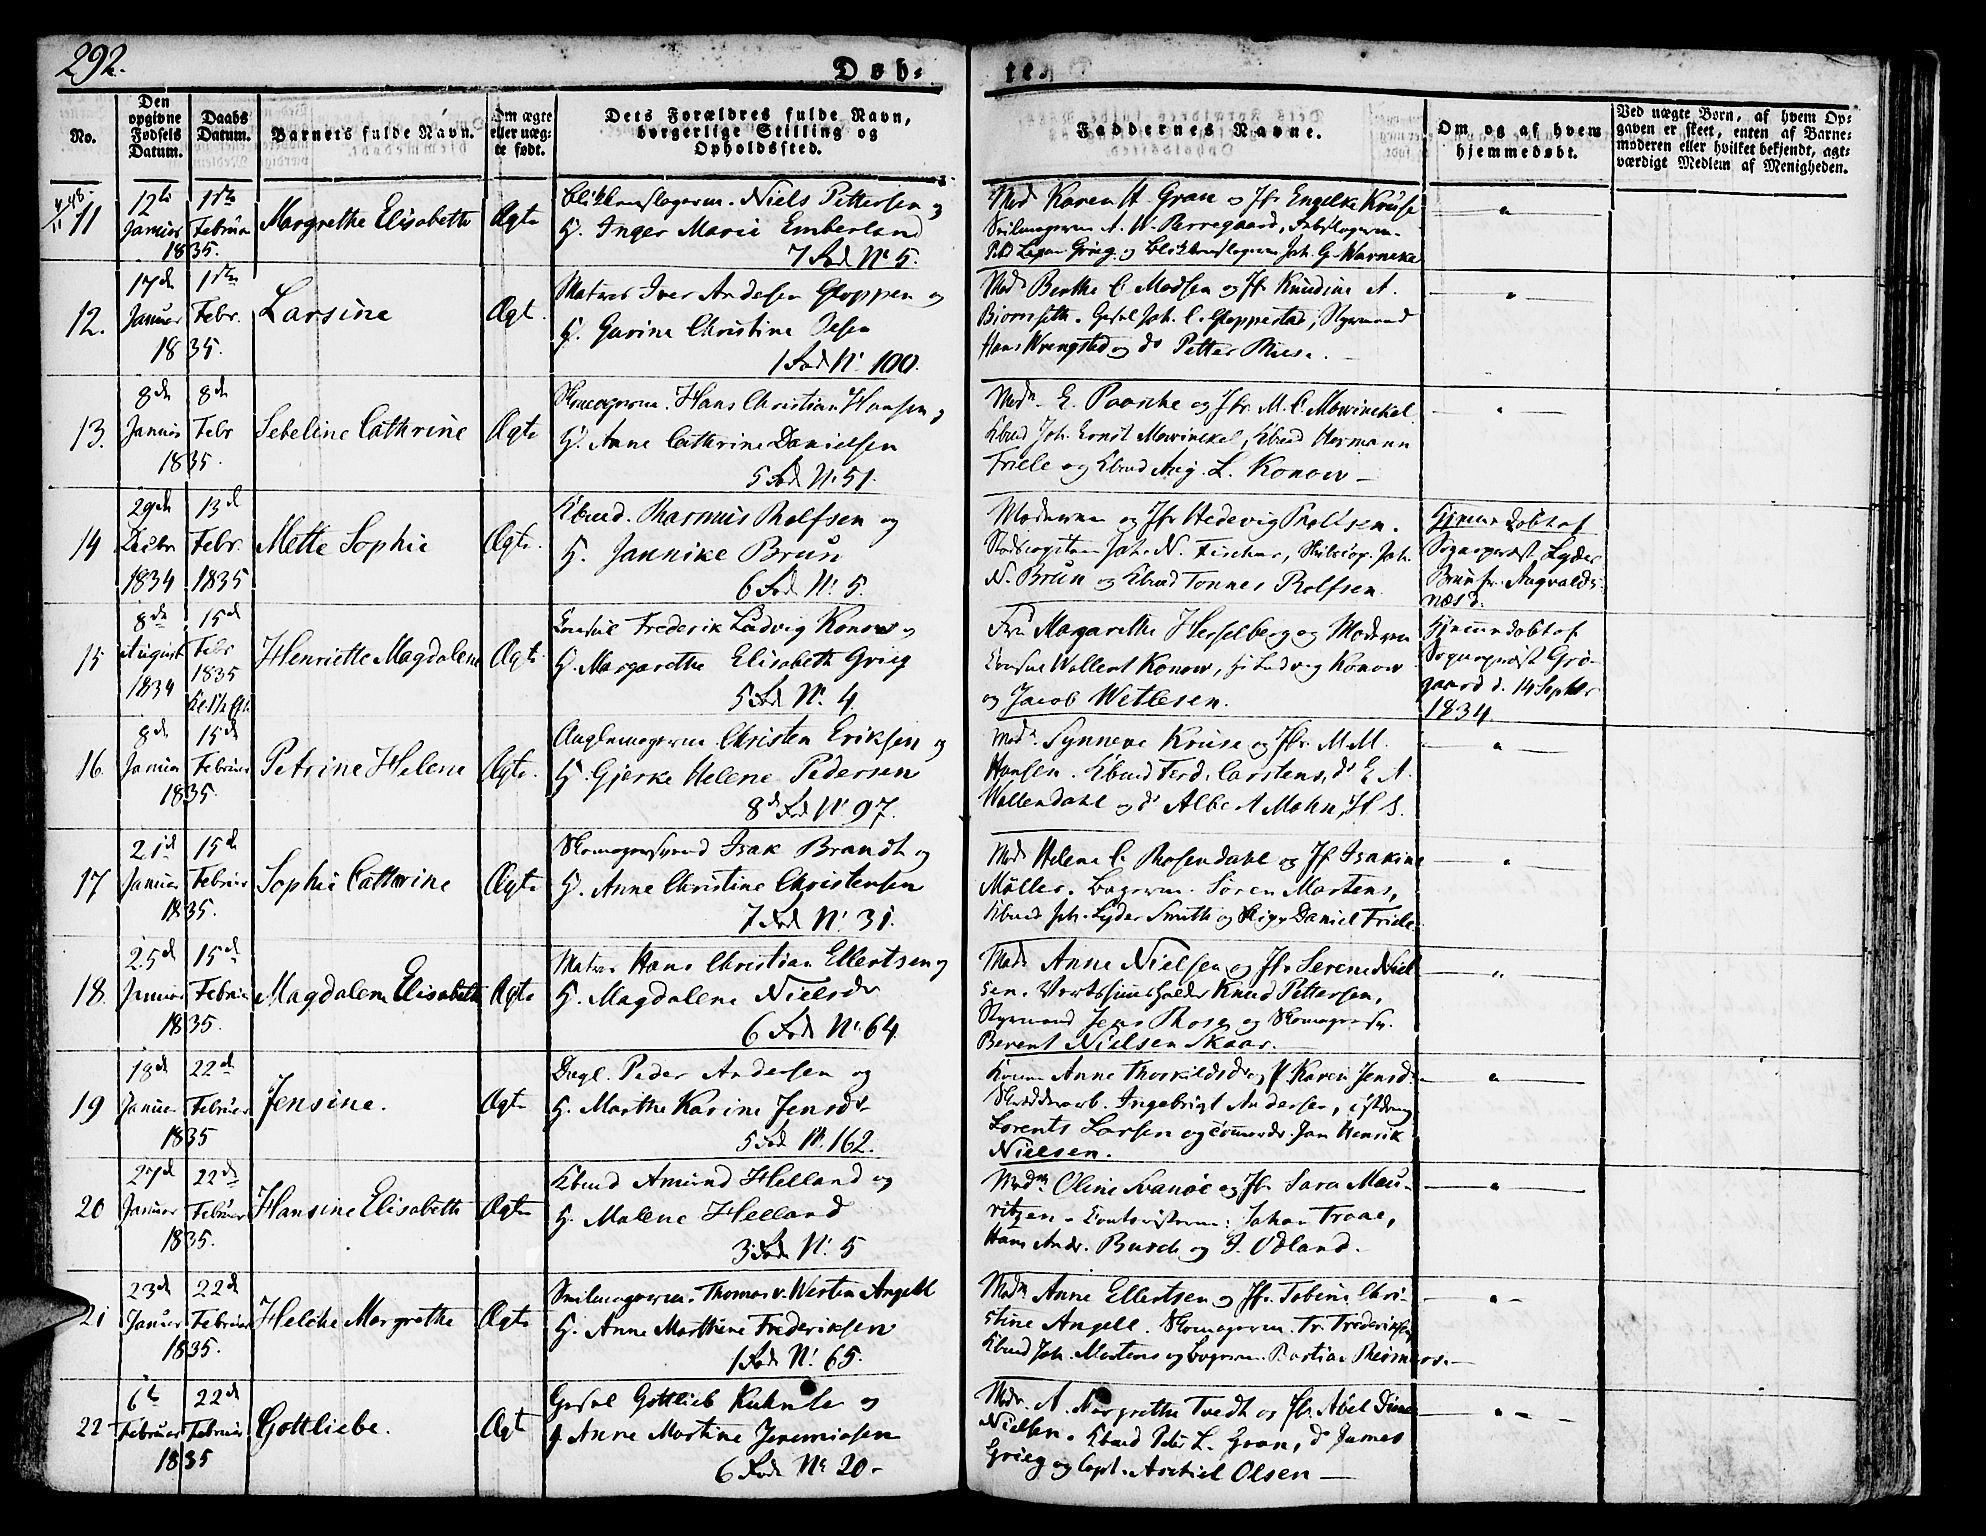 292.
Døb-
te.
No.
Den opgivne Fødsels Datum.
Daabs Datum.
Barnets fulde Navn.
Om ægte eller uægte født.
Dets Forældres fulde Navn, borgerlige Stilling og Opholdssted.
Faddernes Navne.
Om og af hvem hjemmedøbt.
Ved uægte Børn, af hvem Opgaven er skeet, enten af Barnemoderen eller hvilket bekjendt, agtværdigt Medlem af Menigheden.
11
12te Januar 1835.
1ste Februar
Margrethe Elisabeth
Ægte
Blikkenslagerm. Niels Pettersen og
H. Inger Marie Emberland
7 Rod No 5.
Mad Karen H Gran og Jfr Engelke Kruse
Seilmagerm A. W. Parregaard,
Grieg og Blikkenslagerm Joh. G. Warneke
12.
17de Januar 1835.
1ste Febr.
Larsine
Ægt.
Matros Iver Andersen Gloppen og
H. Gurine Christine Olsen
1 Rod No 100.
Mad Berthe C. Madsen og Jfr Knudine A.
Biørnseth. Gesel Joh. C. Gloppestad, Styrmand
Hans Wrengsted og do Petter Muse.
13.
8de Januar 1835.
8de Febr
Sebeline Cathrine
Ægte
Skomagerm. Hans Christian Hansen og
H. Anne Cathrine Danielsen
5 Rod No 51.
Mad. E. Paaske og Jfr. M. C. Mowinckel
Kbmd Joh. Ernst Mowinckel, Kbmd Hermann
Friele og Kbmd Aug. L. Konow
14
29de Decbr. 1834
13de Febr. 1835
Mette Sophie
Ægte.
Kbmd. Rasmus Rolfsen og
H. Jannike Brun
6 Rod No. 5.
Moderen og Jfr Hedevig Rolfsen.
Stadscapitain Joh. N. Fischer, Joh.
N. Brun og Kbmd Tønnes Rolfsen.
Hjemmedøbt af
Sogneprest Lyder
Brun fr. Augvalds-
næs
15
8de August 1834
15de Febr 1835
Henriette Magdalene
Ægte.
Consul Frederik Ludvig Konow og
H. Margarethe Elisabeth Grieg
5 Rod No. 4.
Fru Margarethe Hesselberg og Moderen
Consul Wollert Konow, Hr Ludvig Konow
og Jacob Wetlesen.
Hjemmedøbt af
Sogneprest Grø-
gaard d. 14 Septbr
1834
16.
8de Januar 1835.
15de Februar
Petrine Helene
Ægte.
Anglemagerm. Christen Eriksen og
H. Gjerke Helene Pedersen
8de Rod No 97.
Mad. Synneve Kruse og Jfr M. M.
Hansen. Kbmd Ferd. Carstens, do E A.
Wallendahl og do Albe A Mohn, H. S.
17
21de Januar 1835.
15de Februar
Sophie Cathrine
Ægte
Skomagersvend Isak Brandt og
H. Anne Christine Christensen
7 Rod No. 31.
Mad. Helene C. Rosendahl og Jfr Isakine
Møller. Bagerm. Søren Martens,
Kbmd Joh. Lyder Smith og Daniel Friele
18.
25de Januar 1835.
15de Februar
Magdalene Elisabeth
Ægte
Matros Hans Christian Ellertsen og
H. Magdalene Nielsdr
6 Rod No. 64.
Mad. Anne Nielsen og Jfr Serene Niel-
sen. Vertshuusholder Knud Pettersen,
Styrmand Jens Rose og Skomagersv.
Berent Nielsen Skaar.
19
18de Januar 1835
22de Februar
Jensine.
Ægte
Dagl. Peder Andersen og
H. Marthe Karine Jensdr
5 Rod No. 162.
Konen Anne Thorkildsdr og P. Karen Jensdr
Skrædderarb. Ingebrigt Andersen,
Lorents Larsen og Jan Henrik
Nielsen.
20
27de Januar 1835.
22de Februar
Hansine Elisabeth
Ægte
Kbmd Amund Helland og
H. Malene Helland
3 Rod No. 5
Madm. Oline Svanøe og Jfr. Sara Mau-
ritzen. Contoristerne: Johan Traae,
Hans Andr. Busch og J. Udland.
21
23de Januar 1835.
22de Februar
Helche Margrethe
Ægte
Seilmagerm. Thomas v. Westen Angell
H. Anne Marthine Frederiksen
1 Rod No. 65.
Madm Anne Ellertsen og Jfr. Tobine Chri-
stine Angell. Skomagerm. Fr. Frederiksen
Kbmd Joh. Martens og Bagerm. Bastian Reimers.
22
6te Februar 1835
22de Februar
Gottliebe.
Ægt
Gesel Gottlieb Kuhnle og
H Anne Martine Jeremiasen
6 Rod No 20.
Madm. A. Margrethe Tvedt og Jfr. Abel Dine
Nielsen. Kbmd Peter L. Gran, do James
Grieg og Capt. Axchiel Olsen